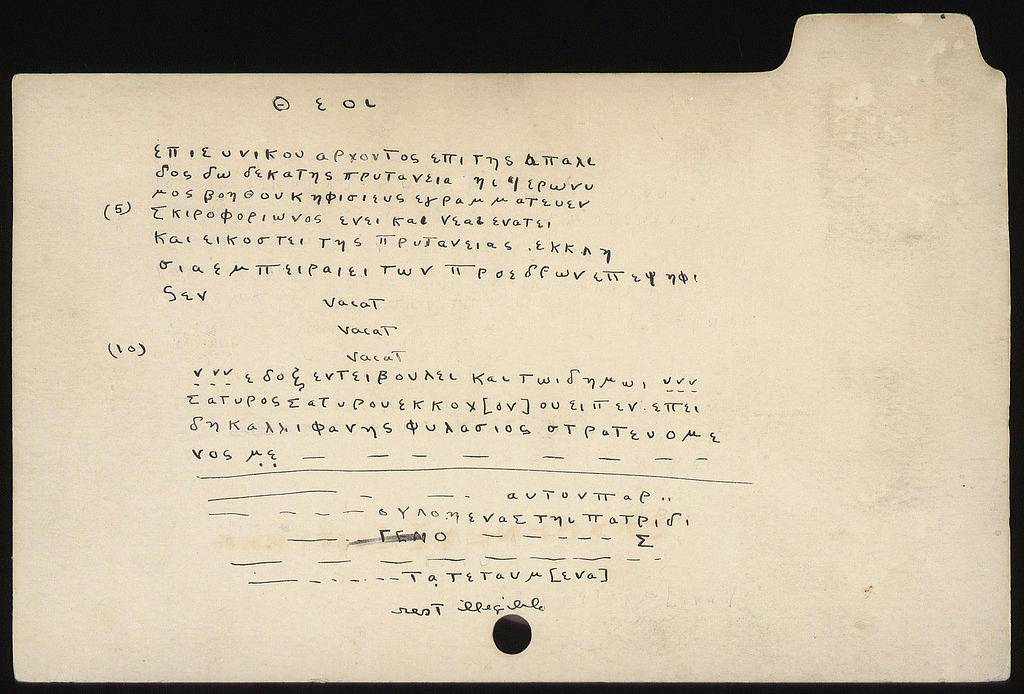 Θ ε οι
επιευνικουαρχοντοςεπιτηςαπαλι
δοςδωδεκατηςπρυτανεια ηιψερωνυ
μοςβοηθουκηφισιευςεγραμματευεν
(5) Σκιροφοριωνοςενεικαινεαιενατει
καιεικοστειτηςπρυτανειας.εκκλη
σιαεμπειραιειτωνπροεδρωνεπεψηφι
ζεν vacat
vacat
(10) vacat
v v v εδοξεντειβουλεικαιτωιδημωι v v v
Σατυροςσατυρουεκκοχ[ον]ουειπεν.επει
δηκαλλιφανηςφυλασιοςστρατευομε
νοςμε — — — — — — — —
— — — αυτονπαρ..
— — — — ουλομεναςτηιπατριδι
— — ΓΕΝΟ — — — — — Σ
— — — — — — — — —
— — — — — τατεταυμ[ενα]
rest illegible